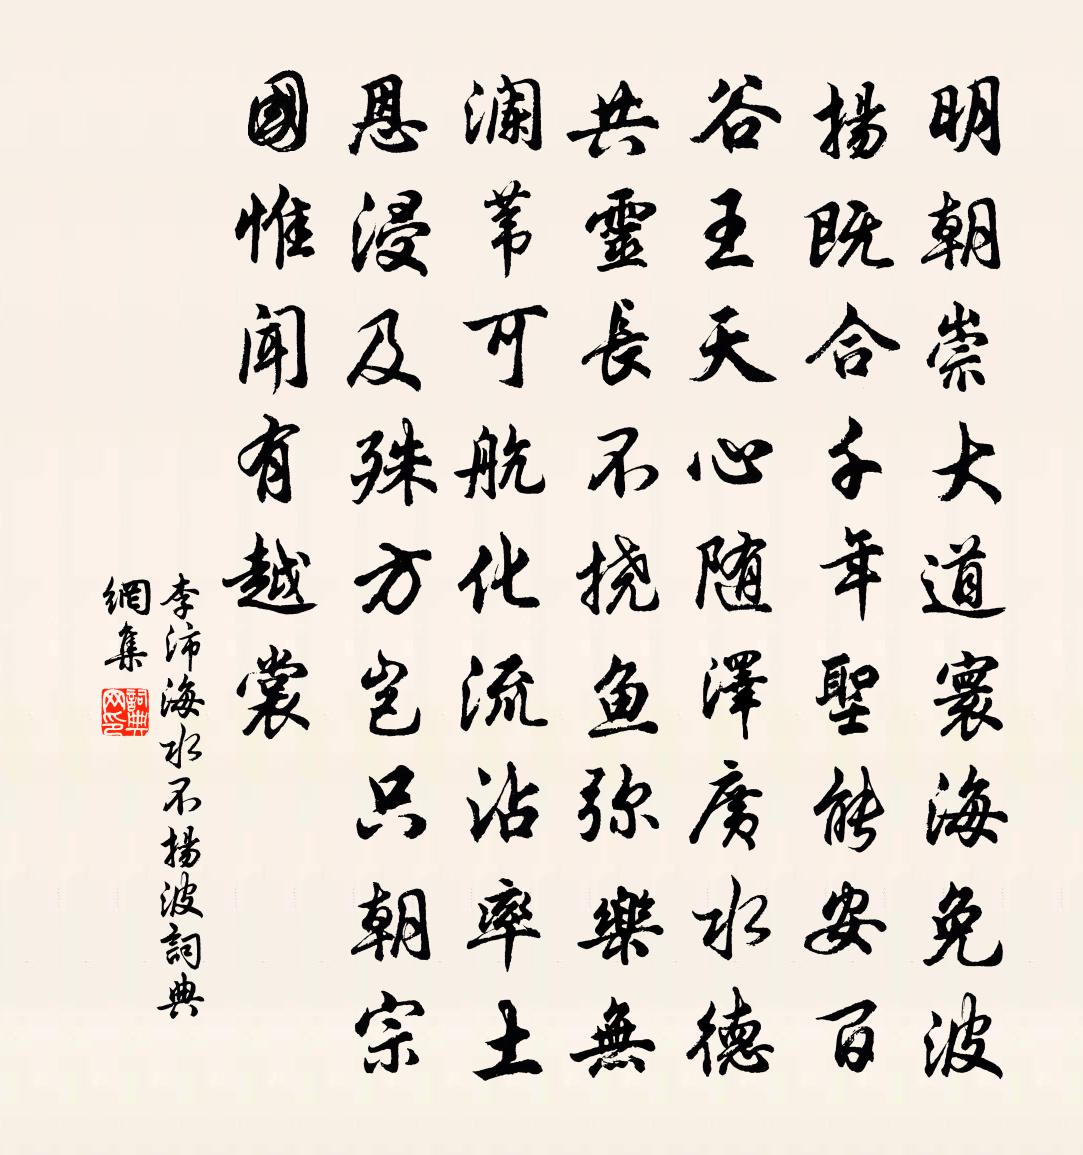 明朝崇大道寰海免波
揚既合千年聖能安百
谷王天心随澤廣水德
共靈長不挠鱼弥樂無
澜苇可航化流沾率土
恩浸及殊方岂只朝宗
國惟聞有越裳
李沛海水不揚波詞典
網集
詞典
网